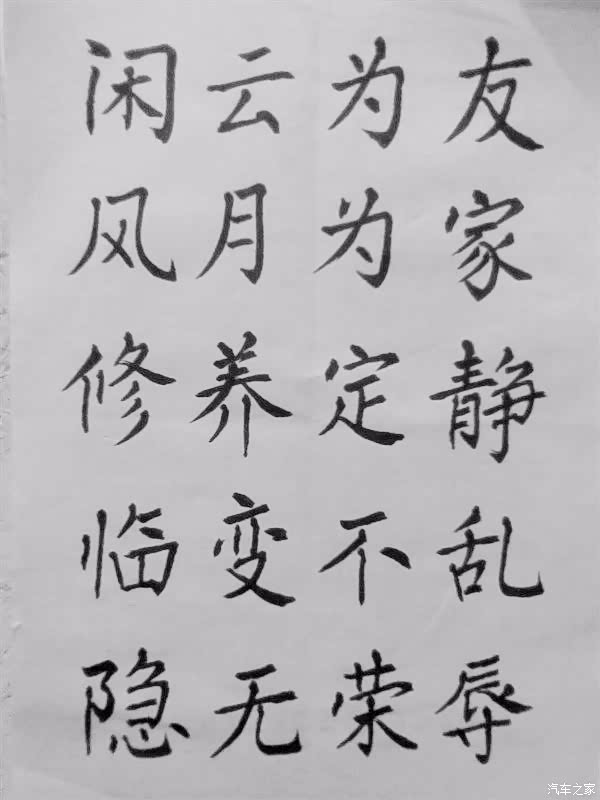 闲云为友
风月为家
修养定静
临变不乱
隐无荣辱
汽车之家